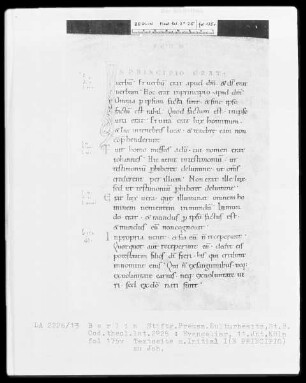 BERLIN
IN PRINCIPIO ERAT
verbum & verbum erat apud dm̄ & ds̄ erat
verbum. Hoc erat in principio apud dm̄.
Omnia p ipsum facta sunt & sine ipso
factū est nihil. Quod factum est in ipso
uita erat & uita erat lux hominum
& lux in tenebris lucet & tenebre eam non
comprehenderunt.
Fuit homo missus a dō cui nomen erat
iohannes. Hic uenit in testimoniū ut
testimoniū phiberet de lumine ut om̄s
crederent per illum. Non erat ille lux
sed ut testimoniū phiberet de lumine.
Erat lux uera que illuminat omnem ho
minem uenientem in mundū. In mun
do erat & mundus p ipsū factus est
& mundus eū non cognouit.
In propria uenit & sui eū n̄ receperunt.
Quotquot aūt receperunt eū dedit eis
potestatem filios dī fieri his qui credunt
in nomine eius. Qui n̄ ex sanguinibus neq;
ex uoluntate carnis neq; ex uoluntate ui
ri sed ex dō nati sunt.
Berlin Stiftg.Preuss.Kulturbesitz,St.B.
fol 17v Textseite m.Initial I(N PRINCIPIO)
zu Joh.